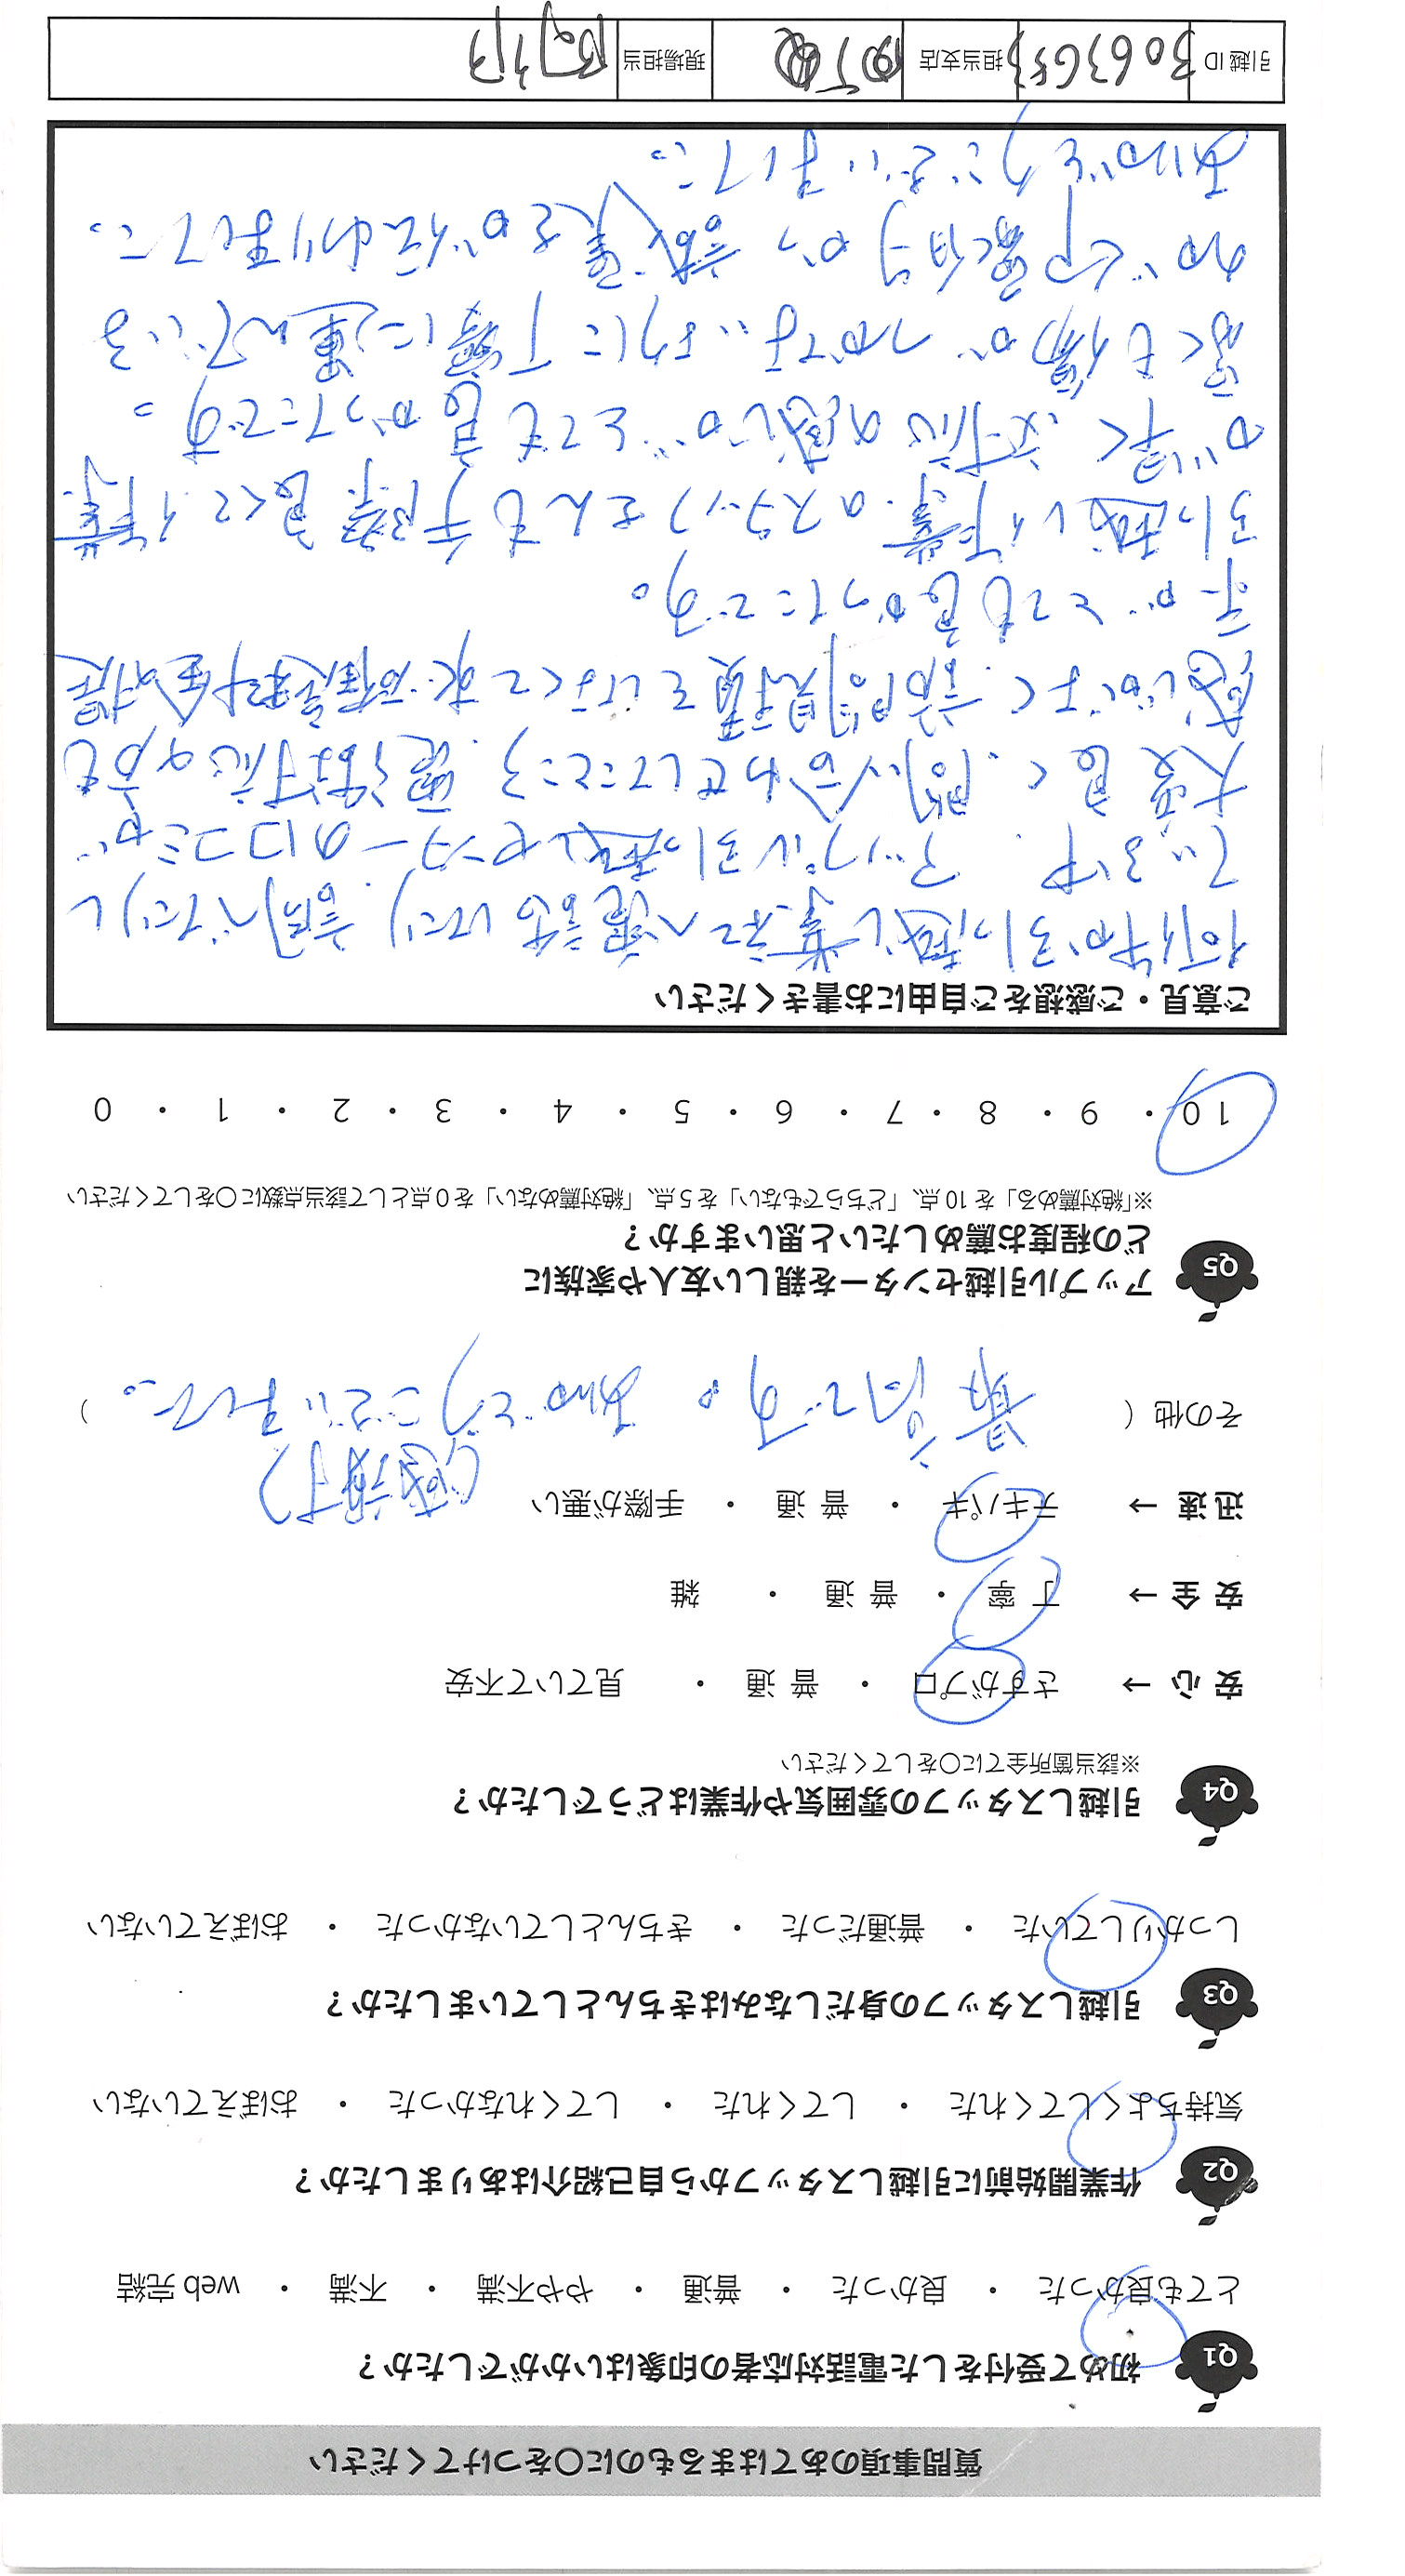 質問事項のあてはまるものに○をつけてください
Q1 初めて受付をした電話対応者の印象はいかがでしたか?
とても良かった ・ 良かった ・ 普通 ・ やや不満 ・ 不満 ・ web 完結
Q2 作業開始前に引越しスタッフから自己紹介はありましたか?
気持ちよくしてくれた ・ してくれた ・ してくれなかった ・ おぼえていない
Q3 引越しスタッフの身だしなみはきちんとしていましたか?
しっかりしていた ・ 普通だった ・ きちんとしていなかった ・ おぼえていない
Q4 引越しスタッフの雰囲気や作業はどうでしたか?
※該当箇所全てに○をしてください
安 心 → さすがプロ ・ 普 通 ・ 見ていて不安
安 全 → 丁 寧 ・ 普 通 ・ 雑
迅 速 → テキパキ ・ 普 通 ・ 手際が悪い
(感謝)
その他( 最高です。ありがとうございました。 )
Q5 アップル引越センターを親しい友人や家族に
どの程度お薦めしたいと思いますか?
※「絶対薦める」を 10 点、「どちらでもない」を 5 点、「絶対薦めない」を 0 点として該当点数に○をしてください
10 ・ 9 ・ 8 ・ 7 ・ 6 ・ 5 ・ 4 ・ 3 ・ 2 ・ 1 ・ 0
ご意見・ご感想をご自由にお書きください
何件か引っ越し業社へ電話したり、調べたりし
ている中、アップル引っ越しセンターの口コミが
大変良く、問い合わせしたところ、電話対応の方も
感じがよく、訪問見積をしなくて、水確認料金掲
示がとても良かったです。
引っ越し作業のスタッフさんも手際良くて、作業
が早く、対応の感じがとても良かったです。
家も傷がつかないように丁寧に運んでいる
かが印象的か、誠意さが伝わりました。
ありがとうございました。
引越 ID 担当支店 現場担当